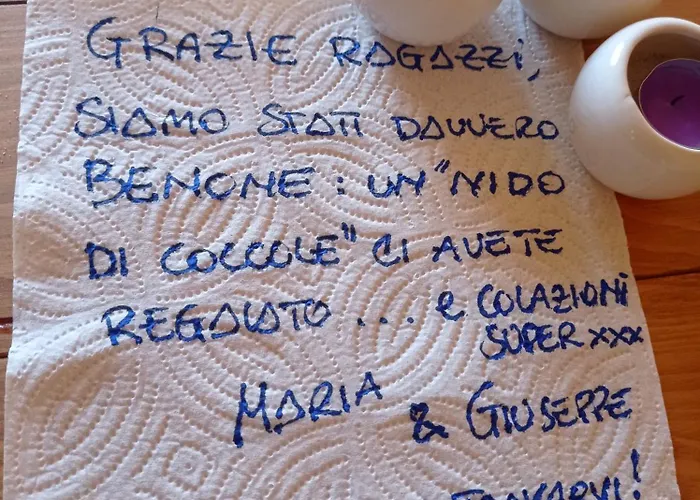 GRAZIE RAGAZZI,
SIAMO STATI DAVVERO
BENONE: UN "NIDO
DI COCCOLE" CI AVETE
REGALATO ... e COLAZIONI
SUPER xxx
MARIA & GIUSEPPE